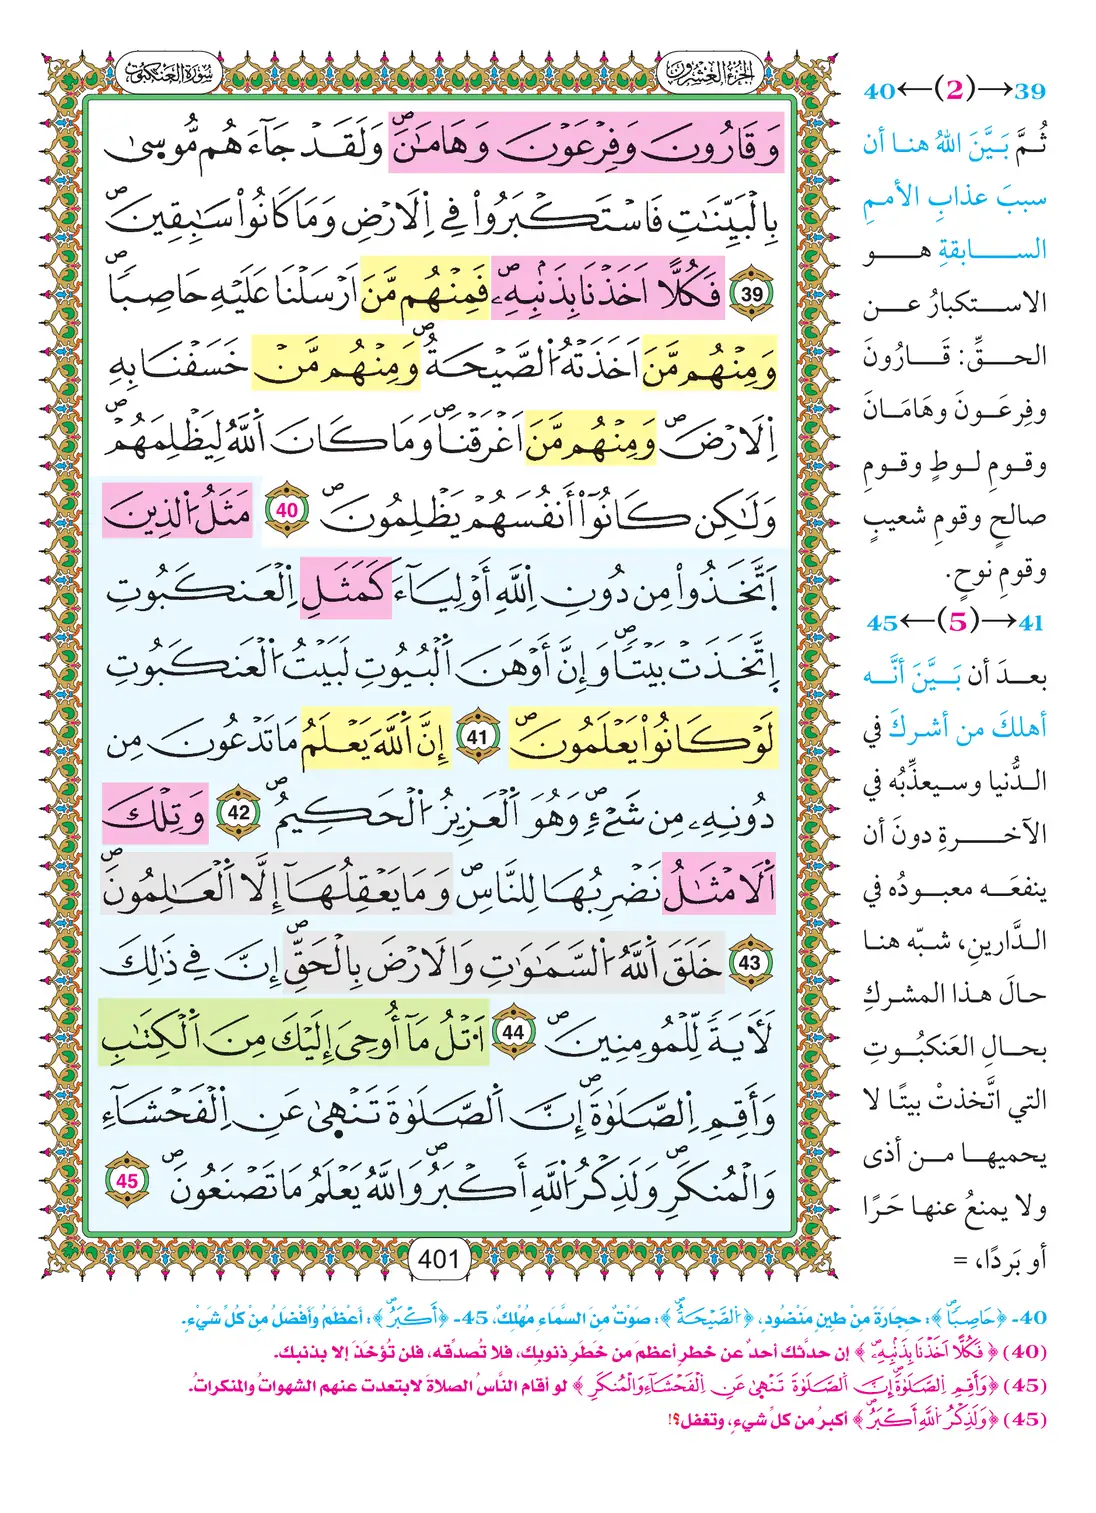 الجزء العشرون
سورة العنكبوت
وَقَٰرُونَ وَفِرْعَوْنَ وَهَٰمَٰنَۖ وَلَقَدْ جَآءَهُم مُّوس۪يٰ
بِالْبَيِّنَٰتِ فَاسْتَكْبَرُواْ فِے اِ۬لَارْضِ وَمَا كَانُواْ سَٰبِقِينَۖ
39 فَكُلّاً اَخَذْنَا بِذَنۢبِهِۦۖ فَمِنْهُم مَّنَ اَرْسَلْنَا عَلَيْهِ حَاصِباٗۖ
وَمِنْهُم مَّنَ اَخَذَتْهُ اُ۬لصَّيْحَةُۖ وَمِنْهُم مَّنْ خَسَفْنَا بِهِ
اِ۬لَارْضَۖ وَمِنْهُم مَّنَ اَغْرَقْنَاۖ وَمَا كَانَ اَ۬للَّهُ لِيَظْلِمَهُمْۖ
وَلَٰكِن كَانُوٓاْ أَنفُسَهُمْ يَظْلِمُونَۖ 40 مَثَلُ اُ۬لذِينَ
اَ۪تَّخَذُواْ مِن دُونِ اِ۬للَّهِ أَوْلِيَآءَ كَمَثَلِ اِ۬لْعَنكَبُوتِ
اِ۪تَّخَذَتْ بَيْتاٗۖ وَإِنَّ أَوْهَنَ اَ۬لْبُيُوتِ لَبَيْتُ اُ۬لْعَنكَبُوتِ
لَوْ كَانُواْ يَعْلَمُونَۖ 41 إِنَّ اَ۬للَّهَ يَعْلَمُ مَا تَدْعُونَ مِن
دُونِهِۦ مِن شَےْءٖۖ وَهُوَ اَ۬لْعَزِيزُ اُ۬لْحَكِيمُۖ 42 وَتِلْكَ
اَ۬لَامْثَٰلُ نَضْرِبُهَا لِلنَّاسِۖ وَمَا يَعْقِلُهَآ إِلَّا اَ۬لْعَٰلِمُونَۖ
43 خَلَقَ اَ۬للَّهُ اُ۬لسَّمَٰوَٰتِ وَالَارْضَ بِالْحَقِّۖ إِنَّ فِے ذَٰلِكَ
لَأٓيَةٗ لِّلْمُومِنِينَۖ 44 اَ۟تْلُ مَآ أُوحِيَ إِلَيْكَ مِنَ اَ۬لْكِتَٰبِ
وَأَقِمِ اِ۬لصَّلَوٰةَۖ إِنَّ اَ۬لصَّلَوٰةَ تَنْه۪يٰ عَنِ اِ۬لْفَحْشَآءِ
وَالْمُنكَرِۖ وَلَذِكْرُ اُ۬للَّهِ أَكْبَرُۖ وَاللَّهُ يَعْلَمُ مَا تَصْنَعُونَۖ 45
401
39→(2)←40
ثُمَّ بَيَّنَ اللهُ هنا أن
سببَ عذابِ الأممِ
السابقةِ هو
الاستكبارُ عن
الحقِّ: قَارُونَ
وفِرعَونَ وهَامَانَ
وقومِ لوطٍ وقومِ
صالحٍ وقومِ شعيبٍ
وقومِ نوحٍ.
41→(5)←45
بعدَ أن بَيَّنَ أنَّه
أهلكَ من أشركَ في
الدُّنيا وسيعذِّبُه في
الآخرةِ دونَ أن
ينفعَه معبودُه في
الدَّارينِ، شبّه هنا
حالَ هذا المشركِ
بحالِ العَنكبُوتِ
التي اتَّخذتْ بيتًا لا
يحميها من أذى
ولا يمنعُ عنها حَرًا
أو بَردًا، =
40- ﴿حَاصِباٗۖ﴾: حِجَارَةً مِنْ طِينٍ مَنْضُودٍ، ﴿اُ۬لصَّيْحَةُۖ﴾: صَوْتٌ مِنَ السَّمَاءِ مُهْلِكٌ، 45- ﴿أَكْبَرُۖ﴾: أَعْظَمُ وَأَفْضَلُ مِنْ كُلِّ شَيْءٍ.
(40) ﴿فَكُلّاً اَخَذْنَا بِذَنۢبِهِۦۖ﴾ إن حدَّثك أحدٌ عن خطرٍ أعظمَ من خطَرِ ذنوبِك، فلا تُصدقْه، فلن تُؤخَذَ إلا بذنبك.
(45) ﴿وَأَقِمِ اِ۬لصَّلَوٰةَۖ إِنَّ اَ۬لصَّلَوٰةَ تَنْه۪يٰ عَنِ اِ۬لْفَحْشَآءِ وَالْمُنكَرِ﴾ لو أقام النَّاسُ الصلاةَ لابتعدت عنهم الشهواتُ والمنكراتُ.
(45) ﴿وَلَذِكْرُ اُ۬للَّهِ أَكْبَرُۖ﴾ أكبرُ من كلِّ شيءٍ، وتغفل؟!